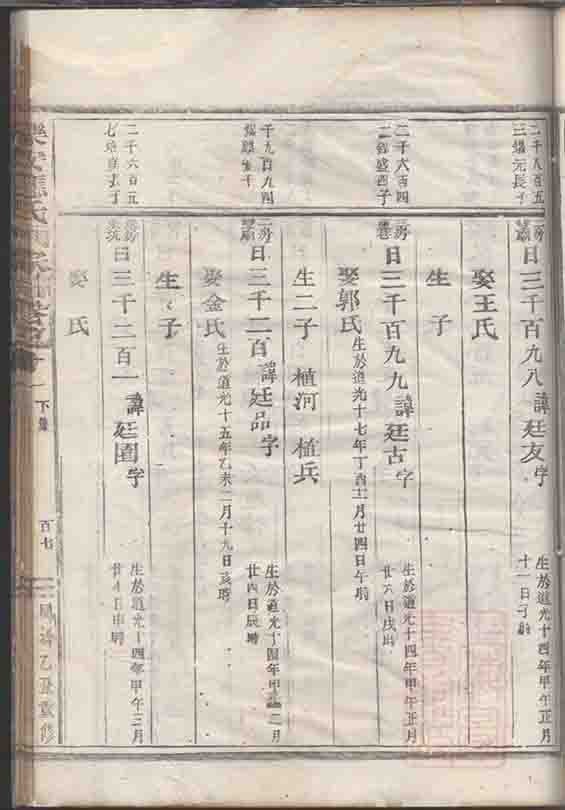 二千八百五
三
元長子
房
曰三千百九八諱廷友字
生於道光十四年甲午正月
十一日子時
娶王氏
生 子
二千六百四
二
盛四子
房
曰三千百九九諱廷古字
生於道光十四年甲午正月
廿六日戌時
娶郭氏
生於道光十七年丁酉十一月廿四日午時
生二子 植河 植兵
千九百九四
二房
曰三千二百諱廷品字
生於道光十四年甲午二月
廿四日辰時
娶金氏
生於道光十五年乙未二月十九日亥時
生 子
二千六百五
七
長子
曰三千二百一諱廷圍字
生於道光十四年甲午三月
日申時
娶 氏
下集
百七
乙丑重修